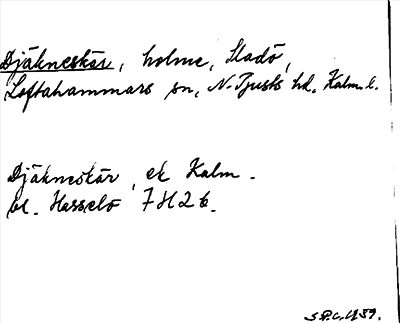 Djäkneskär, holme, Sladö,
Loftahammars sn, N. Tjusts hd, Kalm. l.
Djäkneskär, ek Kalm.
bl. Hasselö 7H2b.